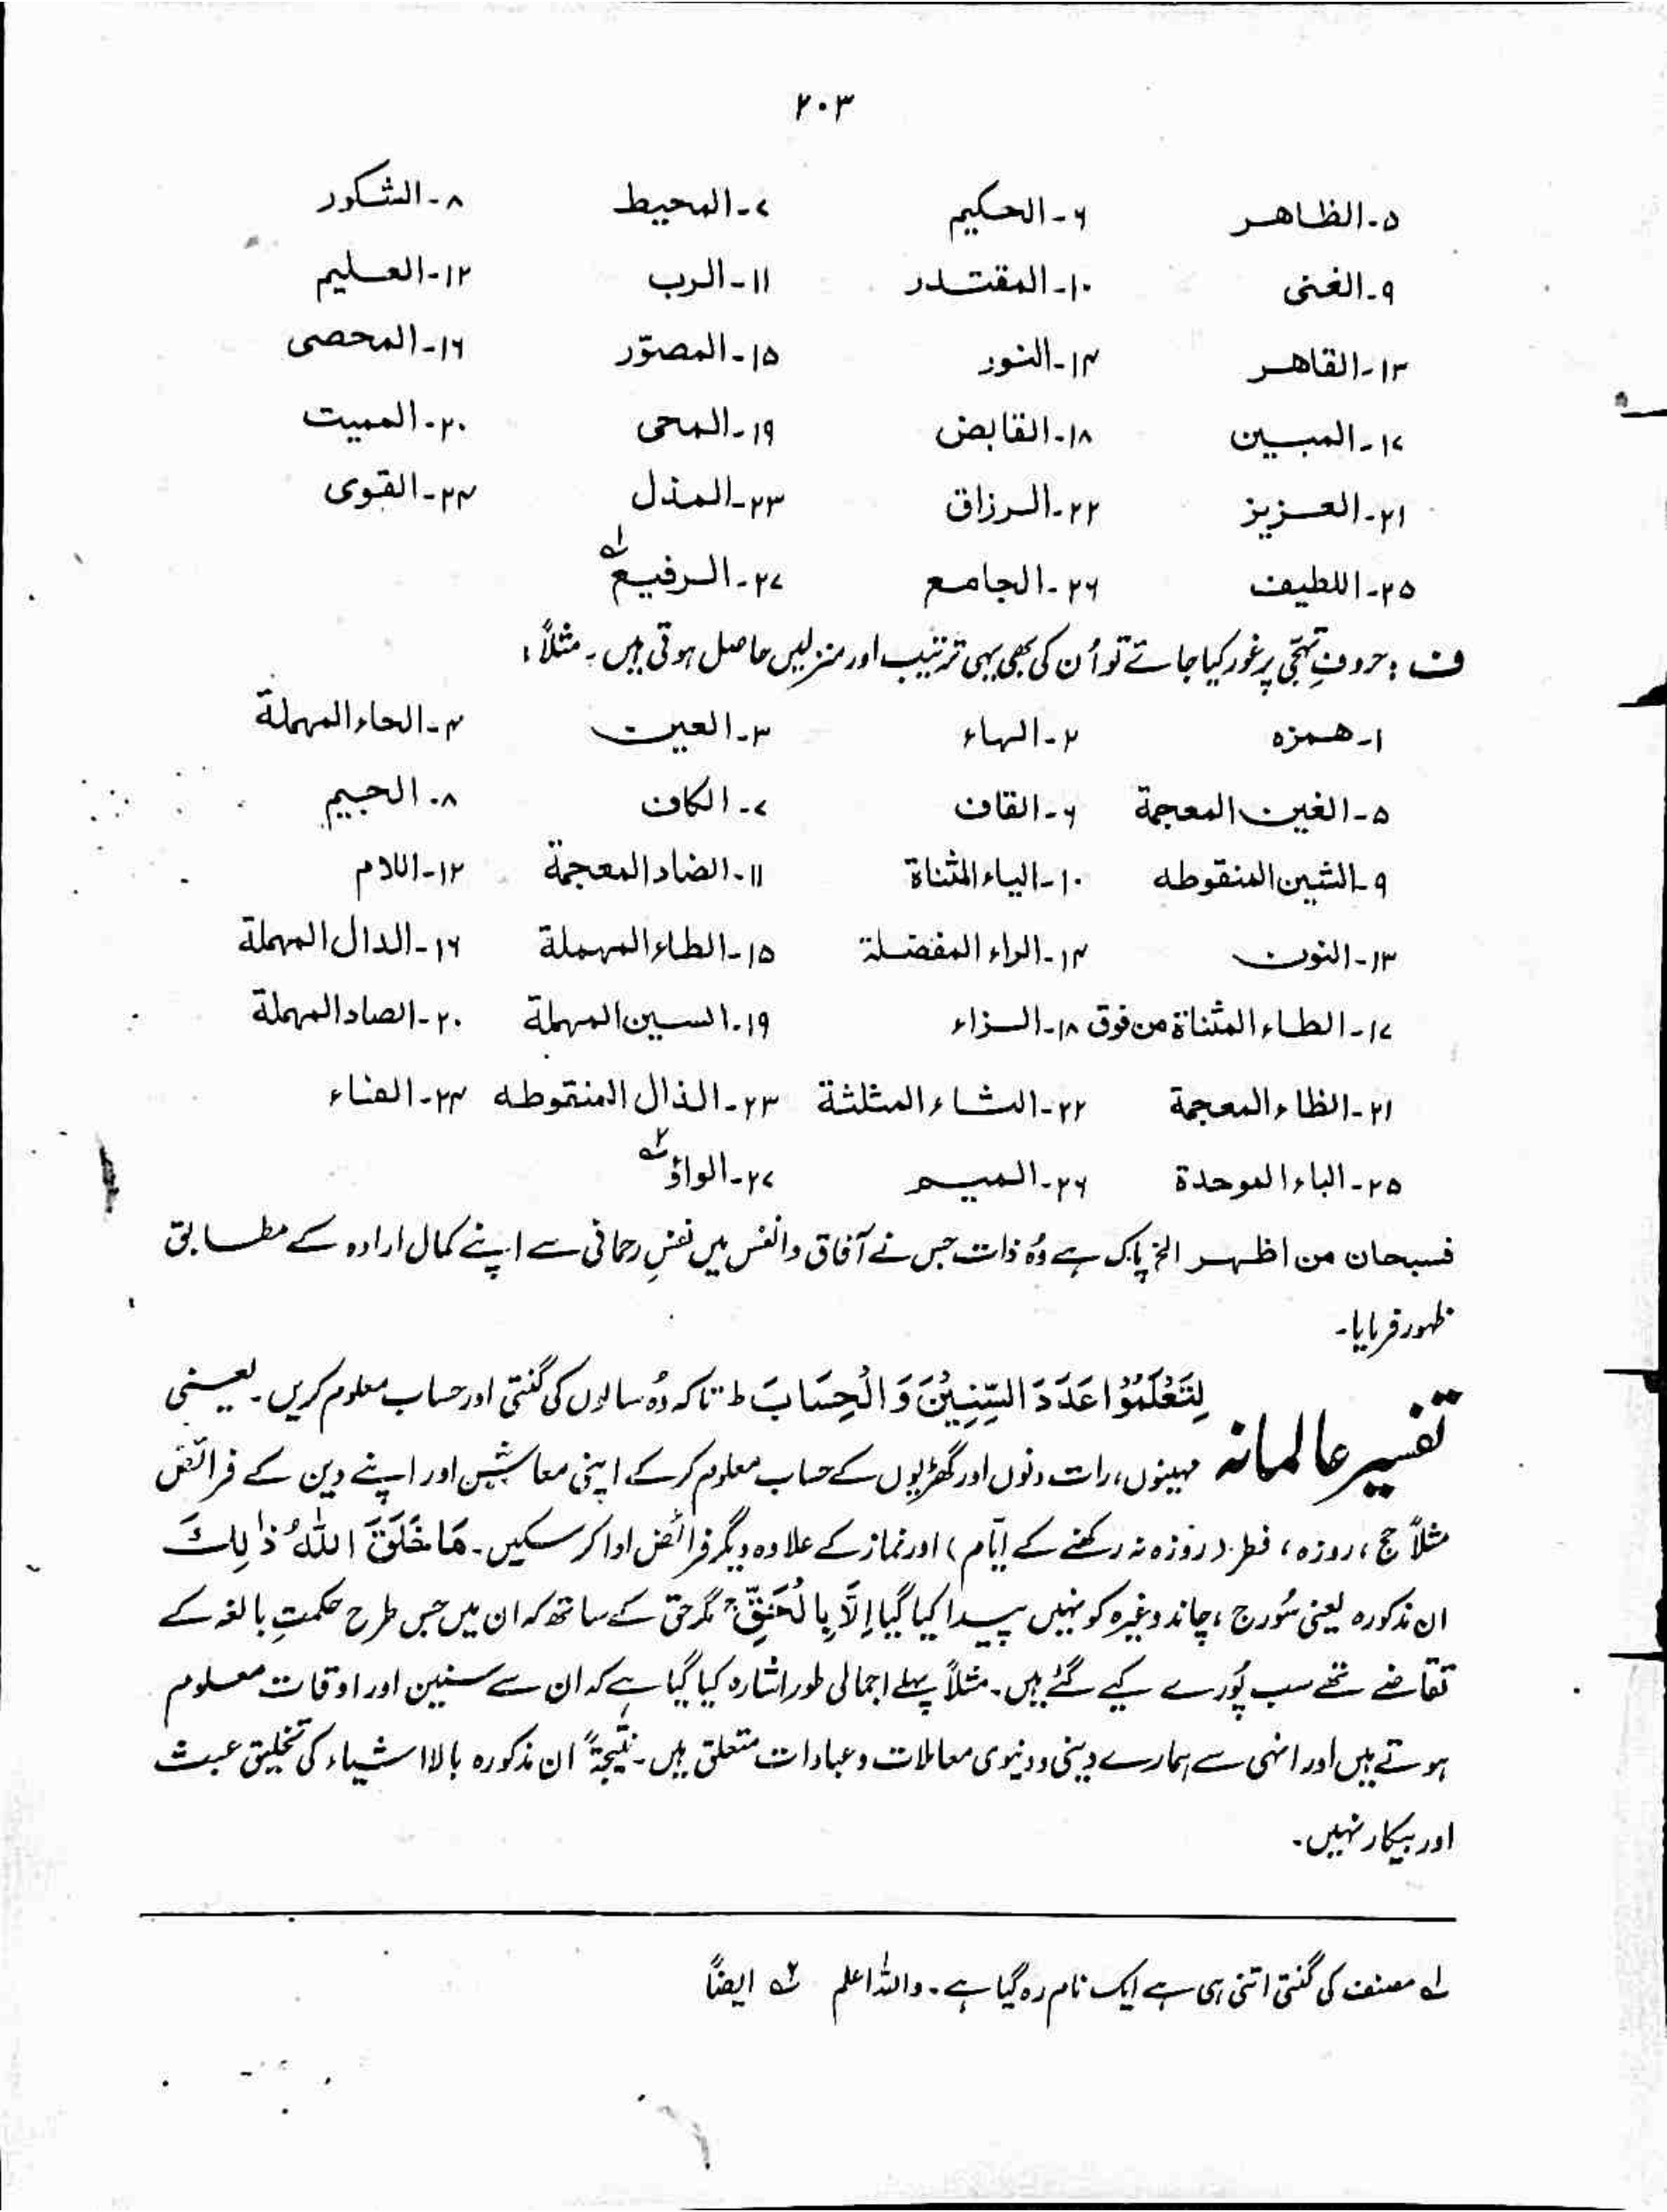 ۲۰۳
۵۔الظاھر ۶۔الحکیم ۷۔المحیط ۸۔الشکور
۹۔الغنی ۱۰۔المقتدر ۱۱۔الرب ۱۲۔العلیم
۱۳۔القاھر ۱۴۔النور ۱۵۔المصوّر ۱۶۔المحصی
۱۷۔المبین ۱۸۔القابض ۱۹۔المحی ۲۰۔الممیت
۲۱۔العزیز ۲۲۔الرزاق ۲۳۔المذل ۲۴۔القوی
۲۵۔اللطیف ۲۶۔الجامع ۲۷۔الرفیع ؂۱
ف : حروفِ تہجّی پر غور کیا جائے تو اُن کی بھی یہی ترتیب اور منزلیں حاصل ہوتی ہیں۔ مثلاً :
۱۔ھمزہ ۲۔الھاء ۳۔العین ۴۔الحاء المھملة
۵۔الغین المعجمة ۶۔القاف ۷۔الکاف ۸۔الجیم
۹۔الشین المنقوطہ ۱۰۔الیاء المثناة ۱۱۔الضاد المعجمة ۱۲۔اللام
۱۳۔النون ۱۴۔الراء المفضلة ۱۵۔الطاء المھملة ۱۶۔الدال المھملة
۱۷۔الطاء المثناة من فوق ۱۸۔الزاء ۱۹۔السین المھملة ۲۰۔الصاد المھملة
۲۱۔الظاء المعجمة ۲۲۔الثاء المثلثة ۲۳۔الذال المنقوطہ ۲۴۔الفاء
۲۵۔الباء الموحدة ۲۶۔المیم ۲۷۔الواؤ ؂۲
فسبحان من اظھر الخ پاک ہے وُہ ذات جس نے آفاق و انفس میں نفسِ رحمانی سے اپنے کمال ارادہ کے مطابق
ظہور فرمایا۔
تفسیر عالمانہ لِتَعْلَمُوْا عَدَدَ السِّنِیْنَ وَ الْحِسَابَ ط تاکہ وُہ سالوں کی گنتی اور حساب معلوم کریں۔ یعنی
مہینوں، رات دنوں اور گھڑیوں کے حساب معلوم کر کے اپنی معاشیں اور اپنے دین کے فرائض
مثلاً حج، روزہ، فطر (روزہ نہ رکھنے کے ایّام) اور نماز کے علاوہ دیگر فرائض ادا کر سکیں۔ مَا خَلَقَ اللّٰہُ ذٰلِكَ
ان مذکورہ یعنی سُورج، چاند وغیرہ کو نہیں پیدا کیا گیا اِلَّا بِالْحَقِّ ج مگر حق کے ساتھ کہ ان میں جس طرح حکمتِ بالغہ کے
تقاضے تھے سب پُورے کیے گئے ہیں۔ مثلاً پہلے اجمالی طور اشارہ کیا گیا ہے کہ ان سے سنین اور اوقات معلوم
ہوتے ہیں اور انہی سے ہمارے دینی و دنیوی معاملات و عبادات متعلق ہیں۔ نتیجۃً ان مذکورہ بالا اشیاء کی تخلیق عبث
اور بیکار نہیں۔
؂۱ مصنف کی گنتی اتنی ہی ہے ایک نام رہ گیا ہے۔ واللہ اعلم ؂۲ ایضاً